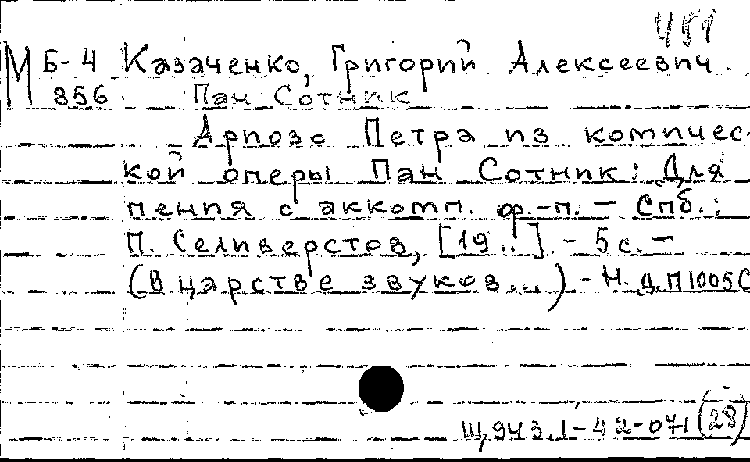 481
М Б-4 Казаченко, Григорий Алексеевич.
856 Пан Сотник
Ариозо Петра из комичес-
кой оперы Пан Сотник: Для
пения с аккомп. ф.-п. - Спб.:
П. Селиверстов, [19..]. - 5 с. -
(В царстве звуков...) - Н. д. П1005С
Щ943.1-42-071 (28)